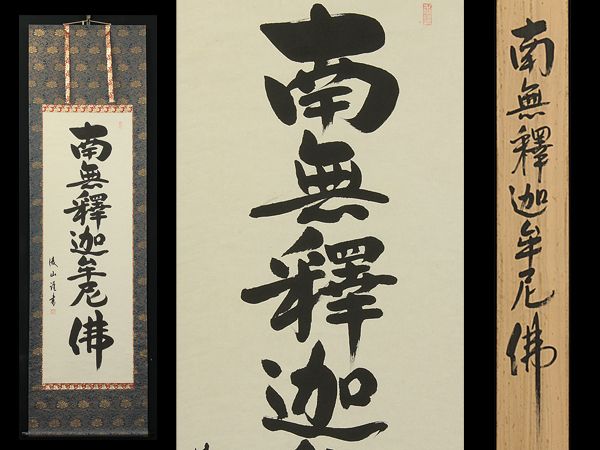 南無釋迦牟尼佛
南無釋迦
南無釋迦牟尼佛